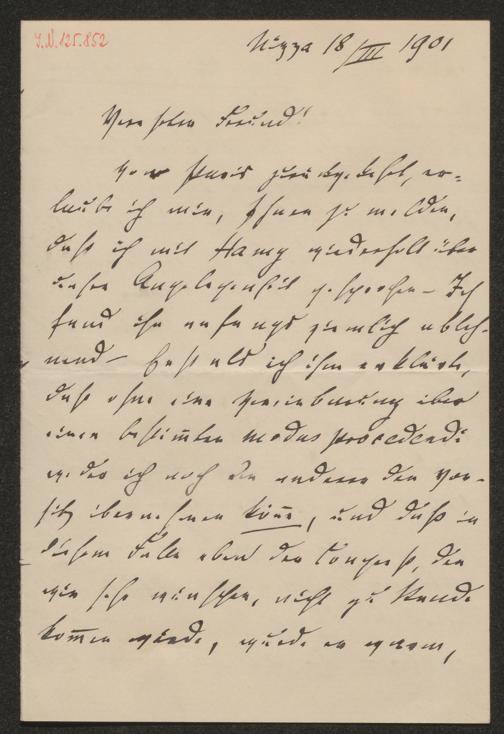 J.N. 125.852
Nizza 18/III 1901
Verehrter Freund!
Von Paris zurückgekehrt, er=
laube ich mir, Ihnen zu melden,
daß ich mit Hamy wiederholt über
unsere Angelegenheit gesprochen – Ich
fand ihn anfangs ziemlich ableh-
nend – Erst als ich ihm erklärte,
daß ohne eine Vereinbarung über
einen bestim̅ten modus procedendi
weder ich noch ein anderer den Vor-
sitz übernehmen kön̅e, und daß in
diesem Falle eben der Congress, den
wir sehr wünschen, nicht zu Stande
kom̅en würde, wurde er warm,